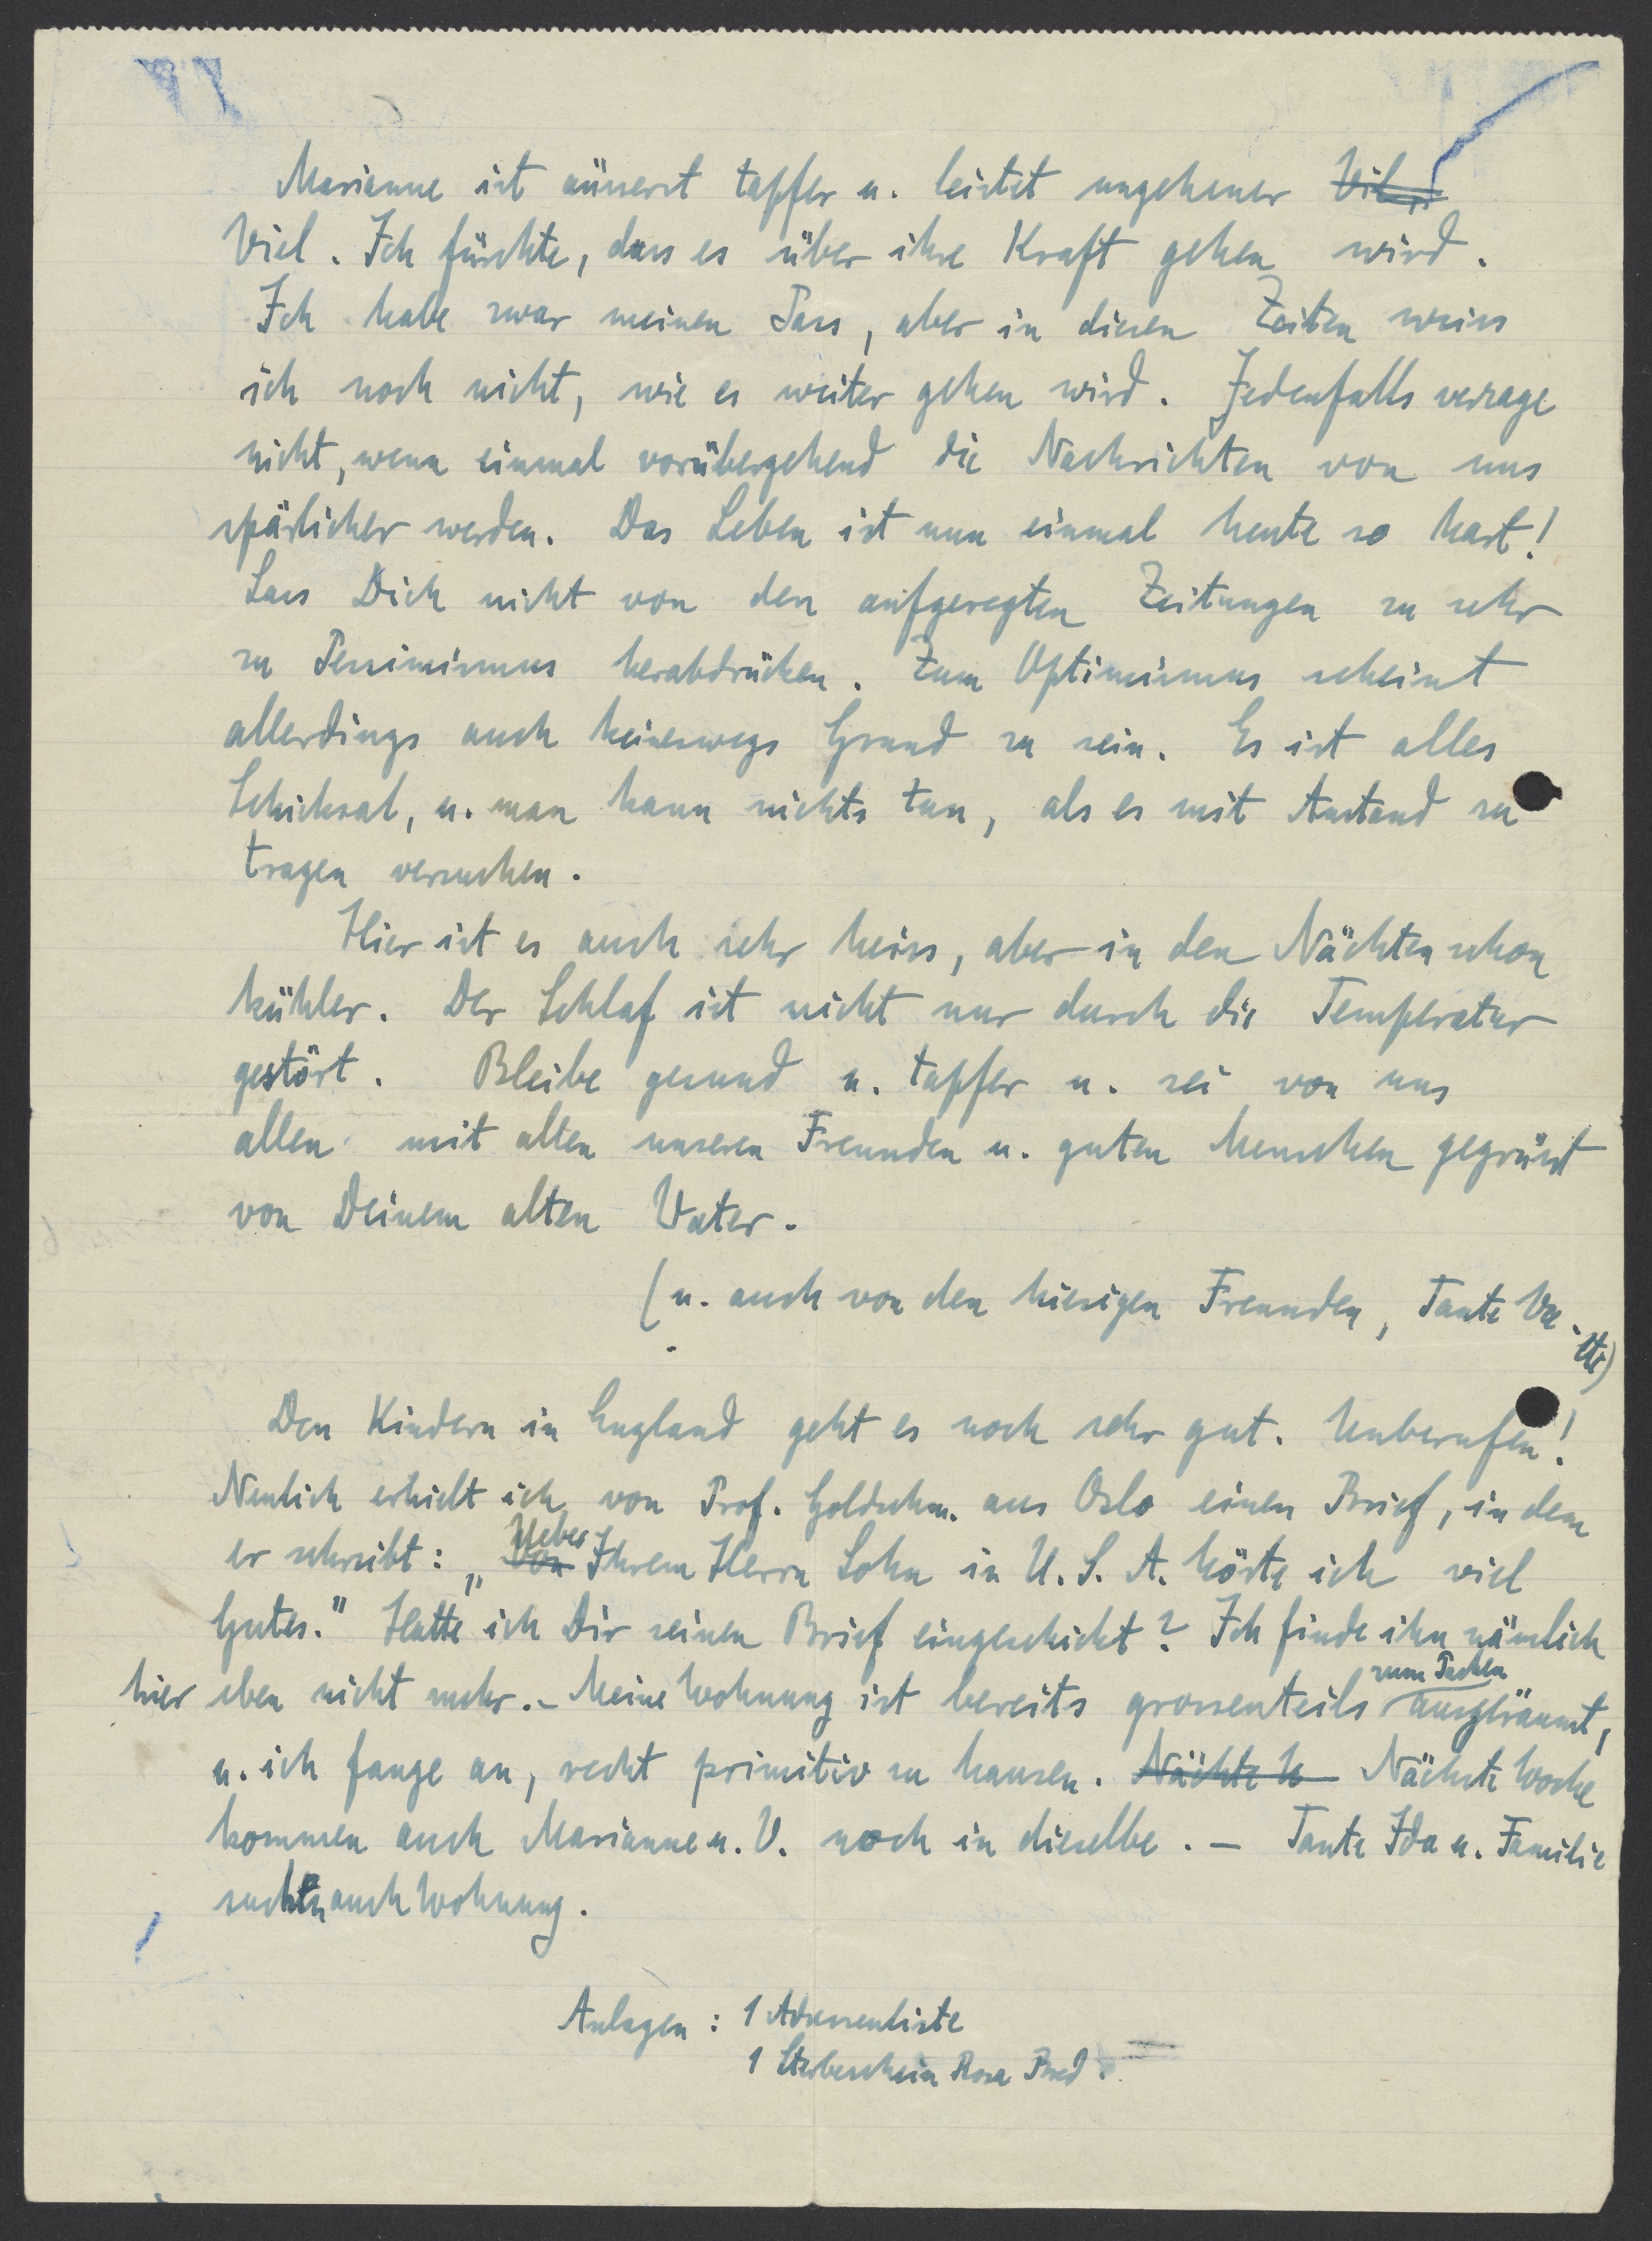 Marianne ist äusserst tapfer u. leistet ungeheuer Viel
Viel. Ich fürchte, dass es über ihre Kraft gehen wird.
Ich habe zwar meinen Pass, aber in diesen Zeiten weiss
ich noch nicht, wie es weiter gehen wird. Jedenfalls verzage
nicht, wenn einmal vorübergehend die Nachrichten von uns
spärlicher werden. Das Leben ist nun einmal heute so hart!
Lass Dich nicht von den aufgeregten Zeitungen zu sehr
zu Pessimismus herabdrücken. Zum Optimismus scheint
allerdings auch keineswegs Grund zu sein. Es ist alles
Schicksal, u. man kann nichts tun, als es mit Anstand zu
tragen versuchen.
Hier ist es auch sehr heiss, aber in den Nächten schon
kühler. Der Schlaf ist nicht nur durch die Temperatur
gestört. Bleibe gesund u. tapfer u. sei von uns
allen mit allen unseren Freunden u. guten Menschen gegrüsst
von Deinem alten Vater.
(u. auch von den hiesigen Freunden, Tante
etc)
Den Kindern in England geht es noch sehr gut. Unberufen!
Neulich erhielt ich von Prof. Goldschm. aus Oslo einen Brief, in dem
er schreibt: „Von Ueber Ihrem Herrn Sohn in U.S.A. hörte ich viel
Gutes." Hatte ich Dir seinen Brief eingeschickt? Ich finde ihn nämlich
hier eben nicht mehr. - Meine Wohnung ist bereits grossenteils zum Packen ausgeräumt,
u. ich fange an, recht primitiv zu hausen. Nächte W Nächste Woche
kommen auch Marianne u. V. noch in dieselbe. - Tante Ida u. Familie
suchen auch Wohnung.
Anlagen: 1 Adressenliste
1 Sterbeschein Rosa